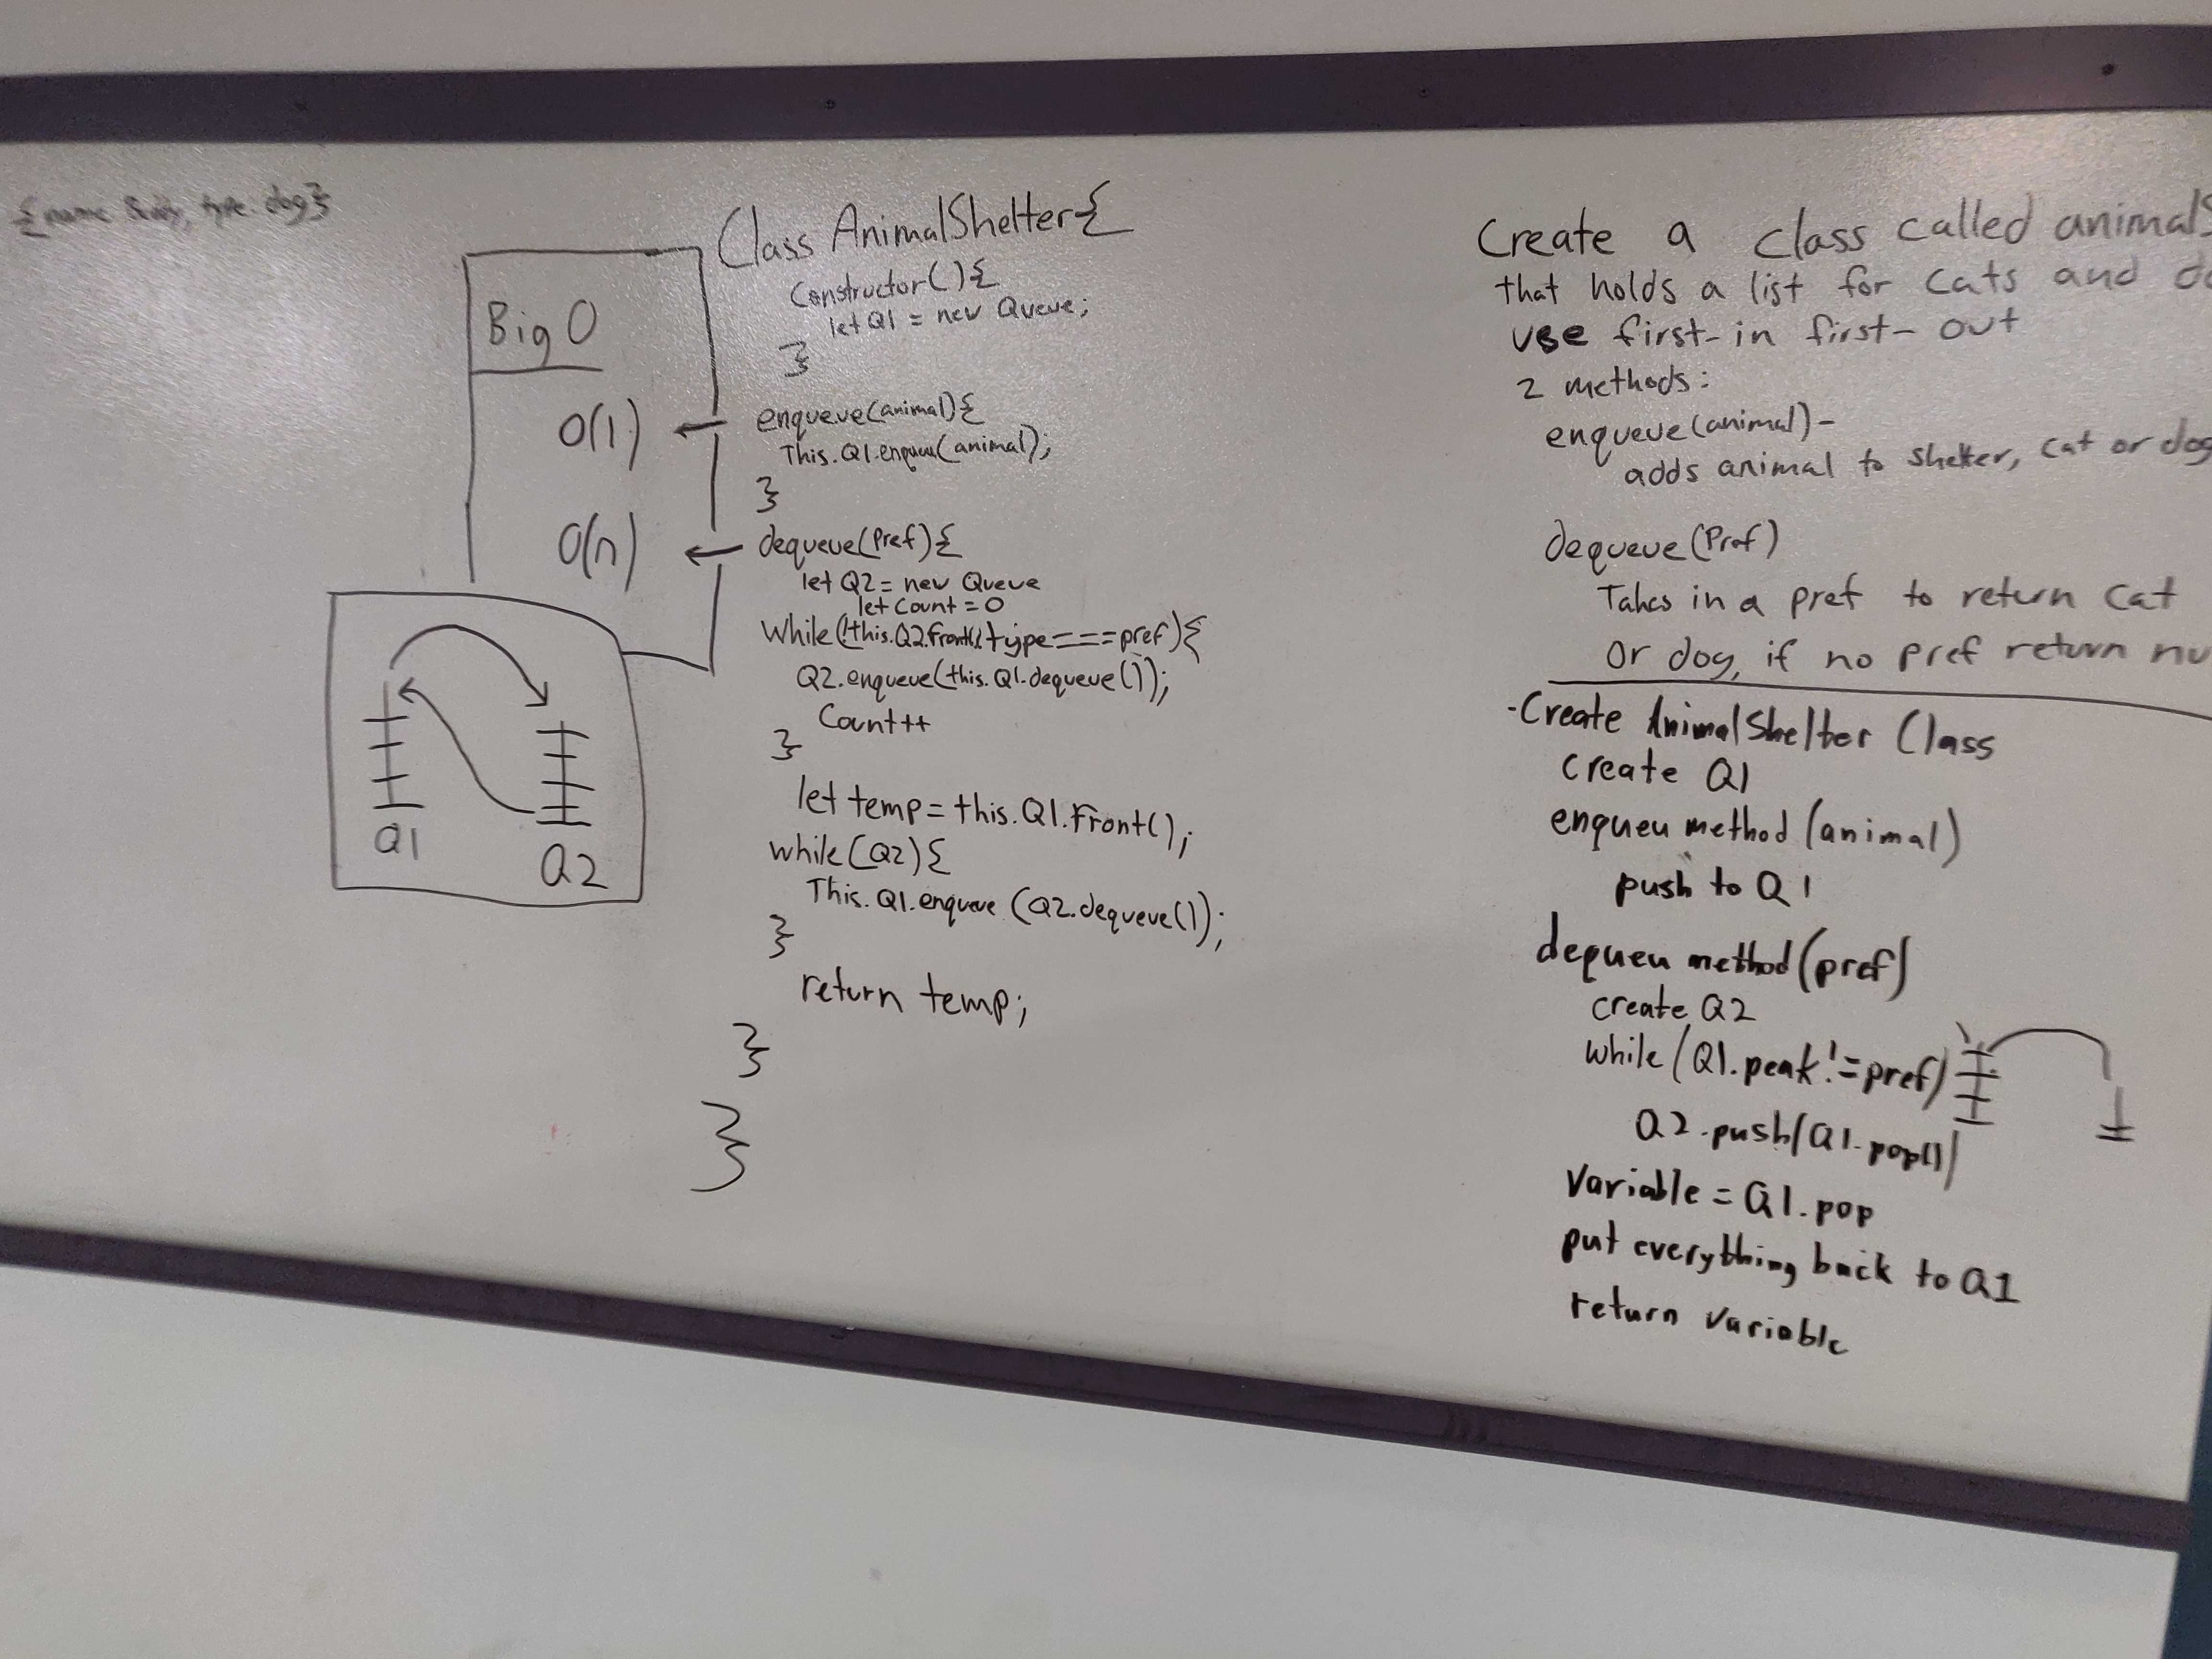 {name Buddy, type: dog}
Big O
O(1)
O(n)
Q1
Q2
Class AnimalShelter{
Constructor(){
let Q1 = new Queue;
}
enqueue(animal){
This.Q1.enqueue(animal);
}
dequeue(Pref){
let Q2 = new Queue
let Count = 0
While(!this.Q2.Front().type===pref){
Q2.enqueue(this.Q1.dequeue());
Count++
}
let temp = this.Q1.Front();
while(Q2){
This.Q1.enqueue (Q2.dequeue());
}
return temp;
}
}
Create a class called animalS
that holds a list for cats and do
use first-in first-out
2 methods:
enqueue(animal)-
adds animal to shelter, cat or dog
dequeue(Pref)
Takes in a pref to return cat
Or dog, if no pref return nu
-Create AnimalShelter Class
create Q1
enqueu method (animal)
push to Q1
dequeu method(pref)
create Q2
while (Q1.peak != pref)
Q2.push(Q1.pop())
Variable = Q1.pop
put everything back to Q1
return variable